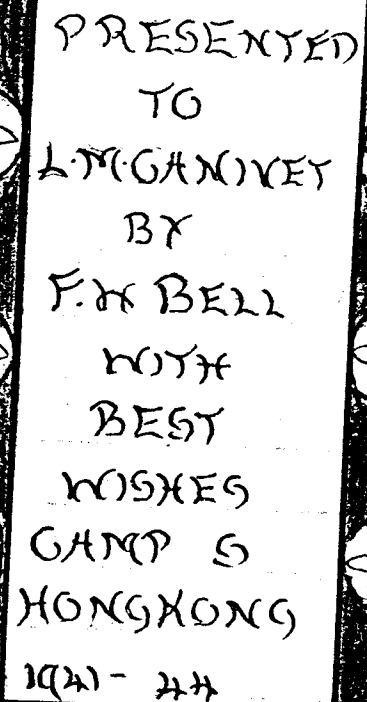 PRESENTED
TO
L.M.CANIVET
BY
F.W BELL
WITH
BEST
WISHES
CAMP S
HONGKONG
1941-44